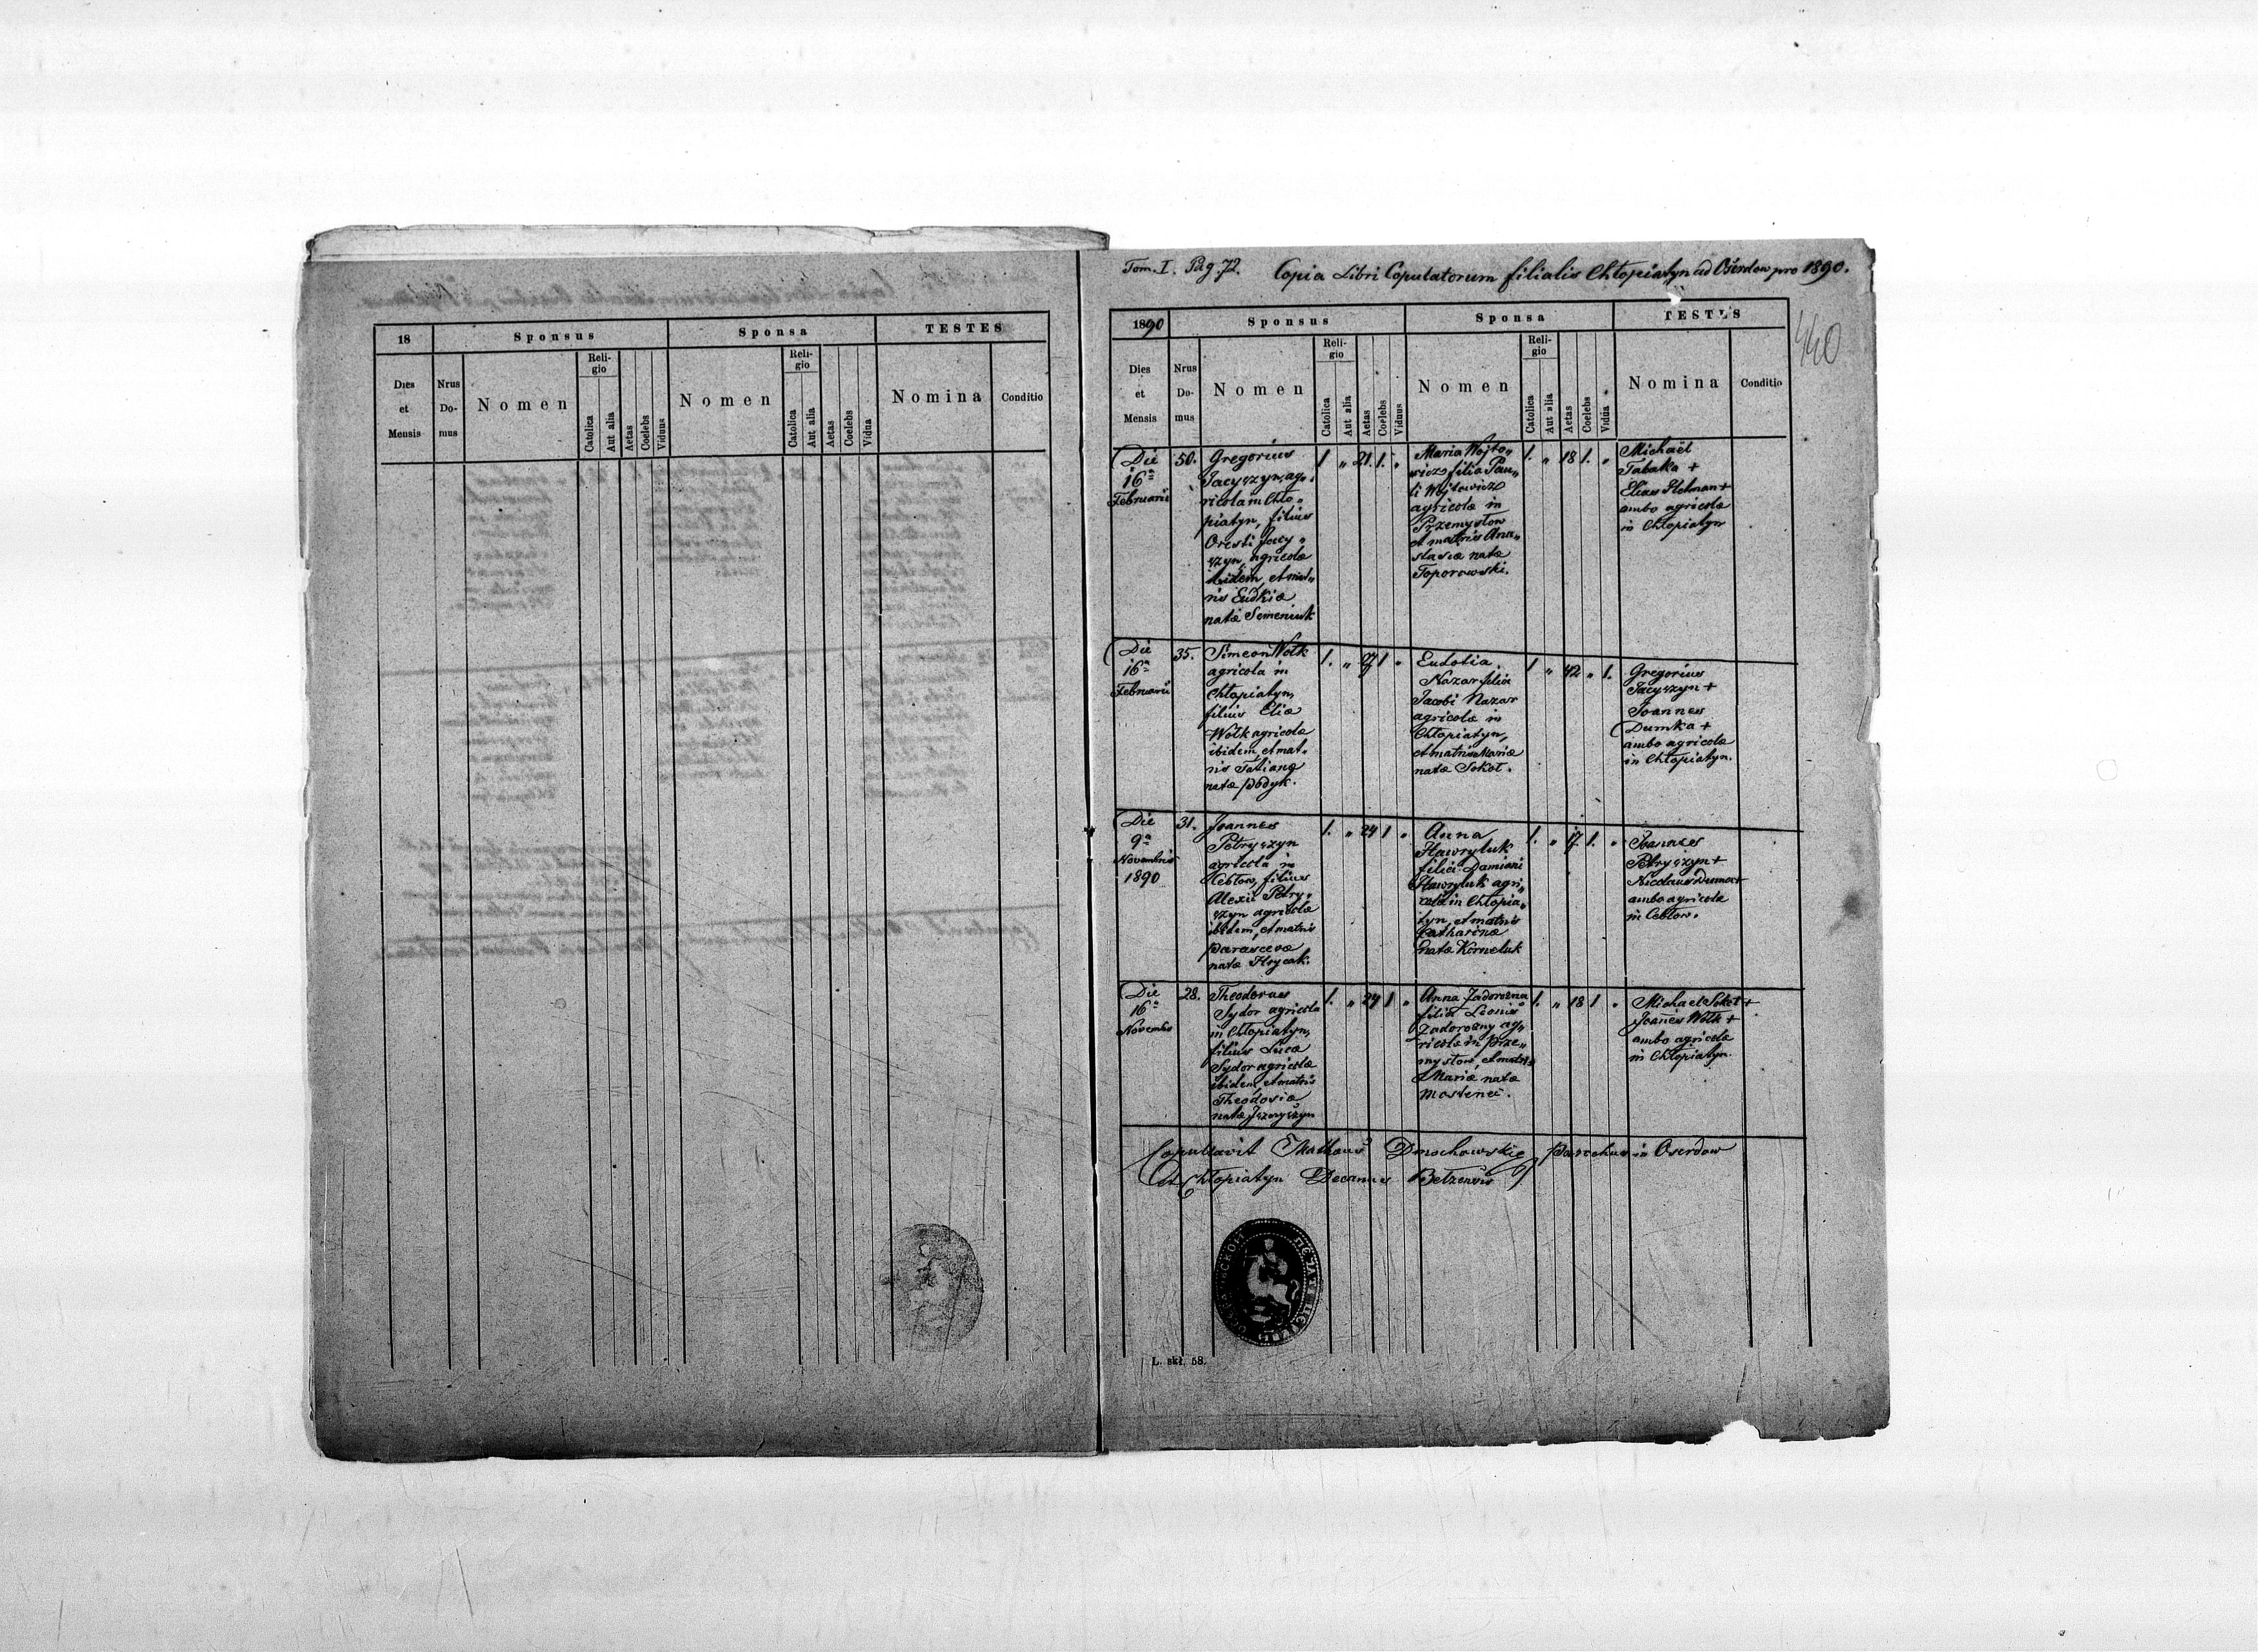 18
Sponsus
Sponsa
TESTES
Dies
et
Mensis
Nrus
Do-
mus
Nomen
Reli-
gio
Catolica
Aut alia
Aetas
Coelebs
Viduus
Nomen
Reli-
gio
Catolica
Aut alia
Aetas
Coelebs
Vidua
Nomina
Conditio
Tom. I. Pag. 72. Copia Libri Copulatorum filialis Chłopiatyn ad Oserdow pro 1890.
440
1890
Sponsus
Sponsa
TESTES
Dies
et
Mensis
Nrus
Do-
mus
Nomen
Reli-
gio
Catolica
Aut alia
Aetas
Coelebs
Viduus
Nomen
Reli-
gio
Catolica
Aut alia
Aetas
Coelebs
Vidua
Nomina
Conditio
Die
16ª
Februarii
50.
Gregorius
Jacyszyn, ag„
ricola in Chło„
piatyn, filius
Oresti Jacy„
szyn, agricolæ
ibidem, et mat„
ris Eudkiæ
natæ Semeniuk
1 „ 21. 1. „
Maria Wojto„
wicz filia Pau„
li Wojtowicz
agricolæ in
Przemysłow
et matris Ana„
stasiæ natæ
Toporowski.
1. „ 18 1. „
Michaël
Tabaka +
Elias Stelman +
ambo agricolæ
in Chłopiatyn
Die
16ª
Februarii
35.
Simeon Wołk
agricola in
Chłopiatyn,
filius Eliæ
Wołk agricolæ
ibidem, et mat„
ris Tatianæ
natæ Podyk.
1. „ 1 „
Eudokia
Nazar filia
Jacobi Nazar
agricolæ in
Chłopiatyn,
et matris Mariæ
natæ Sokoł.
1 „ 42 „ 1.
Gregorius
Jacyszyn +
Joannes
Dumka +
ambo agricolæ
in Chłopiatyn.
Die
9ª
Novembris
1890
31.
Joannes
Petryszyn
agricola in
Cebłow, filius
Alexii Petry„
szyn agricolæ
ibidem, et matris
Parascevæ
natæ Hrycak.
1. „ 24 1 „
Anna
Hawryluk
filia Damiani
Hawryluk agri„
colæ in Chłopia„
tyn, et matris
Catharinæ
natæ Korneluk
1. „ 17. 1. „
Joannes
Petryszyn +
Nicolaus Duma +
ambo agricolæ
in Cebłow.
Die
16ª
Novembris
28.
Theodorus
Sydor agricola
in Chłopiatyn,
filius Lucæ
Sydor agricolæ
ibidem, et matris
Theodosiæ
natæ
1. „ 24 1 „
Anna Zadorozna
filia Leonis
Zadorozny ag„
ricolæ in Prze„
mysłow, et matris
Mariæ natæ
1. „ 18 1 „
Michael Sokoł +
Joannes Wołk +
ambo agricolæ
in Chłopiatyn.
Copulavit Mathæus Dmochowski Parochus in Oserdow
et Chłopiatyn Decanus Bełzensis
L. skł. 58.